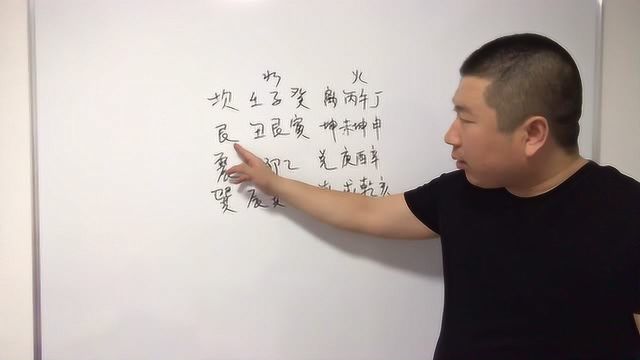 水 火
坎 壬子癸 离 丙午丁
艮 丑艮寅 坤 未坤申
震 卯乙 兑 庚酉辛
巽 辰 乾亥